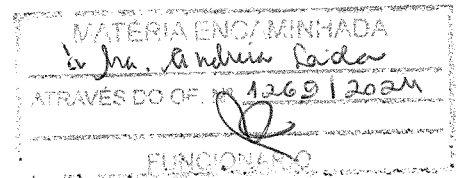 MATÉRIA ENCAMINHADA
à Sra. Andreia
ATRAVÉS DO OF. Nº 1269/2024
FUNCIONÁRIO